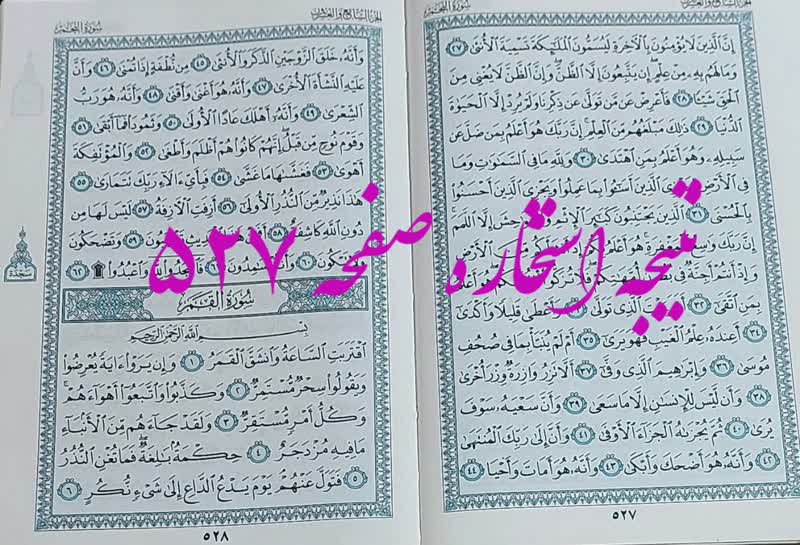 الجزء السابع والعشرون
سورة النجم
إِنَّ الَّذِينَ لَا يُؤْمِنُونَ بِالْآخِرَةِ لَيُسَمُّونَ الْمَلَائِكَةَ تَسْمِيَةَ الْأُنْثَىٰ ٢٧
وَمَا لَهُم بِهِ مِنْ عِلْمٍ إِن يَتَّبِعُونَ إِلَّا الظَّنَّ وَإِنَّ الظَّنَّ لَا يُغْنِي مِنَ
الْحَقِّ شَيْئًا ٢٨ فَأَعْرِضْ عَن مَّن تَوَلَّىٰ عَن ذِكْرِنَا وَلَمْ يُرِدْ إِلَّا الْحَيَوٰةَ
الدُّنْيَا ٢٩ ذَٰلِكَ مَبْلَغُهُم مِّنَ الْعِلْمِ إِنَّ رَبَّكَ هُوَ أَعْلَمُ بِمَن ضَلَّ عَن
سَبِيلِهِ وَهُوَ أَعْلَمُ بِمَنِ اهْتَدَىٰ ٣٠ وَلِلَّهِ مَا فِي السَّمَٰوَٰتِ وَمَا
فِي الْأَرْضِ الَّذِينَ أَسَٰٓـُٔوا بِمَا عَمِلُوا وَيَجْزِيَ الَّذِينَ أَحْسَنُوا
بِالْحُسْنَى ٣١ الَّذِينَ يَجْتَنِبُونَ كَبَٰٓئِرَ الْإِثْمِ إِلَّا اللَّمَمَ
إِنَّ رَبَّكَ وَٰسِعُ الْمَغْفِرَةِ هُوَ أَعْلَمُ الْأَرْضِ
وَإِذْ أَنتُمْ أَجِنَّةٌ فِي هُوَ أَعْلَمُ
بِمَنِ اتَّقَىٰ ٣٢ الَّذِي تَوَلَّىٰ وَأَعْطَىٰ قَلِيلًا وَأَكْدَىٰ
٣٤ أَعِندَهُ عِلْمُ الْغَيْبِ فَهُوَ يَرَىٰ ٣٥ أَمْ لَمْ يُنَبَّأْ بِمَا فِي صُحُفِ
مُوسَىٰ ٣٦ وَإِبْرَٰهِيمَ الَّذِي وَفَّىٰ ٣٧ أَلَّا تَزِرُ وَازِرَةٌ وِزْرَ أُخْرَىٰ
٣٨ وَأَن لَّيْسَ لِلْإِنسَٰنِ إِلَّا مَا سَعَىٰ ٣٩ وَأَنَّ سَعْيَهُ سَوْفَ
يُرَىٰ ٤٠ ثُمَّ يُجْزَىٰهُ الْجَزَآءَ الْأَوْفَىٰ ٤١ وَأَنَّ إِلَىٰ رَبِّكَ الْمُنتَهَىٰ
٤٢ وَأَنَّهُ هُوَ أَضْحَكَ وَأَبْكَىٰ ٤٣ وَأَنَّهُ هُوَ أَمَاتَ وَأَحْيَا ٤٤
٥٢٧
الجزء السابع والعشرون
سورة النجم
وَأَنَّهُ خَلَقَ الزَّوْجَيْنِ الذَّكَرَ وَالْأُنثَىٰ ٤٥ مِن نُّطْفَةٍ إِذَا تُمْنَىٰ ٤٦ وَأَنَّ
عَلَيْهِ النَّشْأَةَ الْأُخْرَىٰ ٤٧ وَأَنَّهُ هُوَ أَغْنَىٰ وَأَقْنَىٰ ٤٨ وَأَنَّهُ هُوَ رَبُّ
الشِّعْرَىٰ ٤٩ وَأَنَّهُ أَهْلَكَ عَادًا الْأُولَىٰ ٥٠ وَثَمُودَا فَمَا أَبْقَىٰ ٥١
وَقَوْمَ نُوحٍ مِّن قَبْلُ إِنَّهُمْ كَانُوا هُمْ أَظْلَمَ وَأَطْغَىٰ ٥٢ وَالْمُؤْتَفِكَةَ
أَهْوَىٰ ٥٣ فَغَشَّىٰهَا مَا غَشَّىٰ ٥٤ فَبِأَيِّ ءَالَآءِ رَبِّكَ تَتَمَارَىٰ ٥٥
هَٰذَا نَذِيرٌ مِّنَ النُّذُرِ الْأُولَىٰ ٥٦ أَزِفَتِ الْآزِفَةُ ٥٧ لَيْسَ لَهَا مِن
دُونِ اللَّهِ كَاشِفَةٌ ٥٨ أَفَمِنْ هَٰذَا الْحَدِيثِ تَعْجَبُونَ ٥٩ وَتَضْحَكُونَ
وَلَا تَبْكُونَ ٦٠ وَأَنتُمْ سَٰمِدُونَ ٦١ فَاسْجُدُوا لِلَّهِ وَاعْبُدُوا ۩ ٦٢
سجدة
سُورَةُ القَمَرِ
بِسْمِ اللَّهِ الرَّحْمَٰنِ الرَّحِيمِ
اقْتَرَبَتِ السَّاعَةُ وَانشَقَّ الْقَمَرُ ١ وَإِن يَرَوْا ءَايَةً يُعْرِضُوا
وَيَقُولُوا سِحْرٌ مُّسْتَمِرٌّ ٢ وَكَذَّبُوا وَاتَّبَعُوا أَهْوَآءَهُمْ
وَكُلُّ أَمْرٍ مُّسْتَقِرٌّ ٣ وَلَقَدْ جَآءَهُم مِّنَ الْأَنبَآءِ
مَا فِيهِ مُزْدَجَرٌ ٤ حِكْمَةٌ بَٰلِغَةٌ فَمَا تُغْنِ النُّذُرُ
٥ فَتَوَلَّ عَنْهُمْ يَوْمَ يَدْعُ الدَّاعِ إِلَىٰ شَيْءٍ نُّكُرٍ ٦
٥٢٨
نتیجه استخاره صفحه ۵۲۷